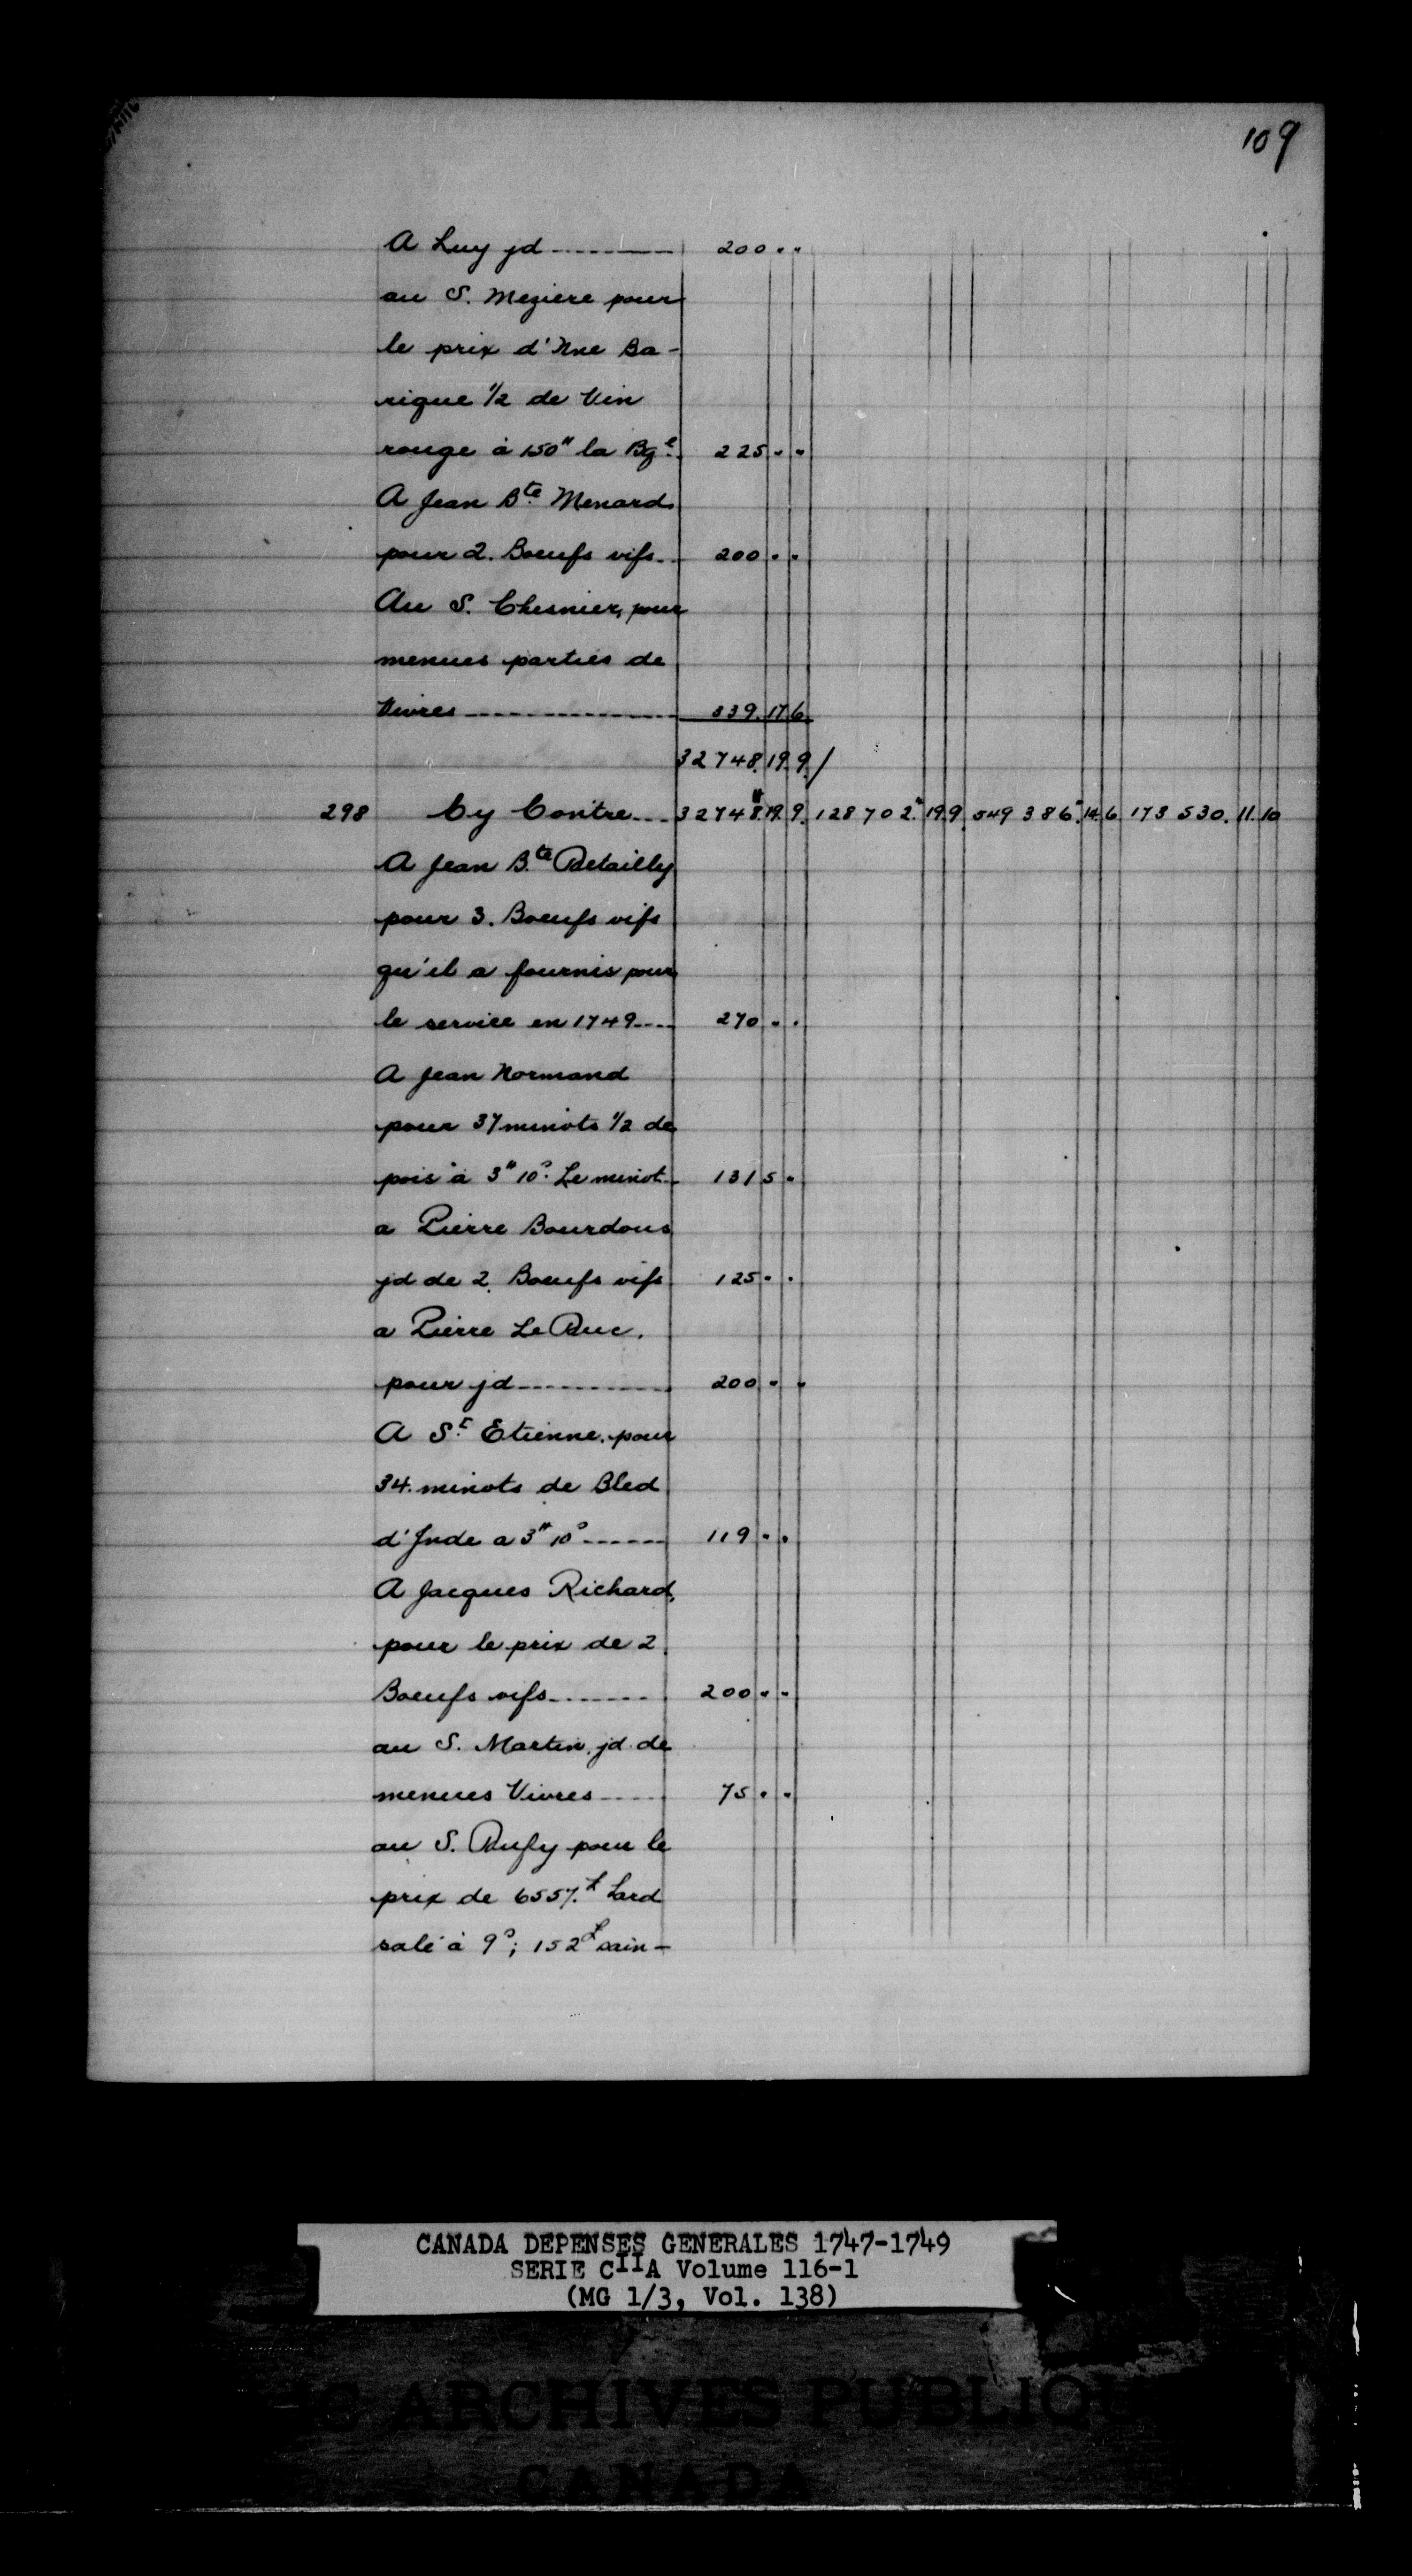 109
A Luy jd ---------- 200 " "
au S. Meziere pour
le prix d'Une Ba-
rique 1/2 de Vin
rouge à 150# la Bqe. 225 " "
A Jean Bte Menard
pour 2. Boeufs vifs -- 200 " "
Au S. Chesnier, pour
menues parties de
Vivres ---------- 339. 17. 6.
32748. 19. 9. /
298 Cy Contre --- 32748.# 19. 9. 128702.# 19. 9. 549386.# 14. 6. 173530. 11. 10
A Jean Bte Detailly
pour 3. Boeufs vifs
qu'il a fournis pour
le service en 1749 ---- 270 " "
A Jean Normand
pour 37 minots 1/2 de
pois à 3# 10s. Le minot - 131 5 "
a Pierre Bourdous
jd de 2. Boeufs vifs 125 " "
a Pierre Le Duc.
pour jd ---------- 200 " "
A St. Etienne. pour
34. minots de Bled
d'Inde a 3# 10s ------ 119 " "
A Jacques Richard,
pour le prix de 2.
Boeufs vifs ------- 200 " "
au S. Martin. jd de
menues Vivres ---- 75 " "
au S. Dufy pour le
prix de 6557.# Lard
salé à 9s; 152# sain-
CANADA DEPENSES GENERALES 1747-1749
SERIE CIIA Volume 116-1
(MG 1/3, Vol. 138)
C ARCHIVES PUBLIQU
CANADA